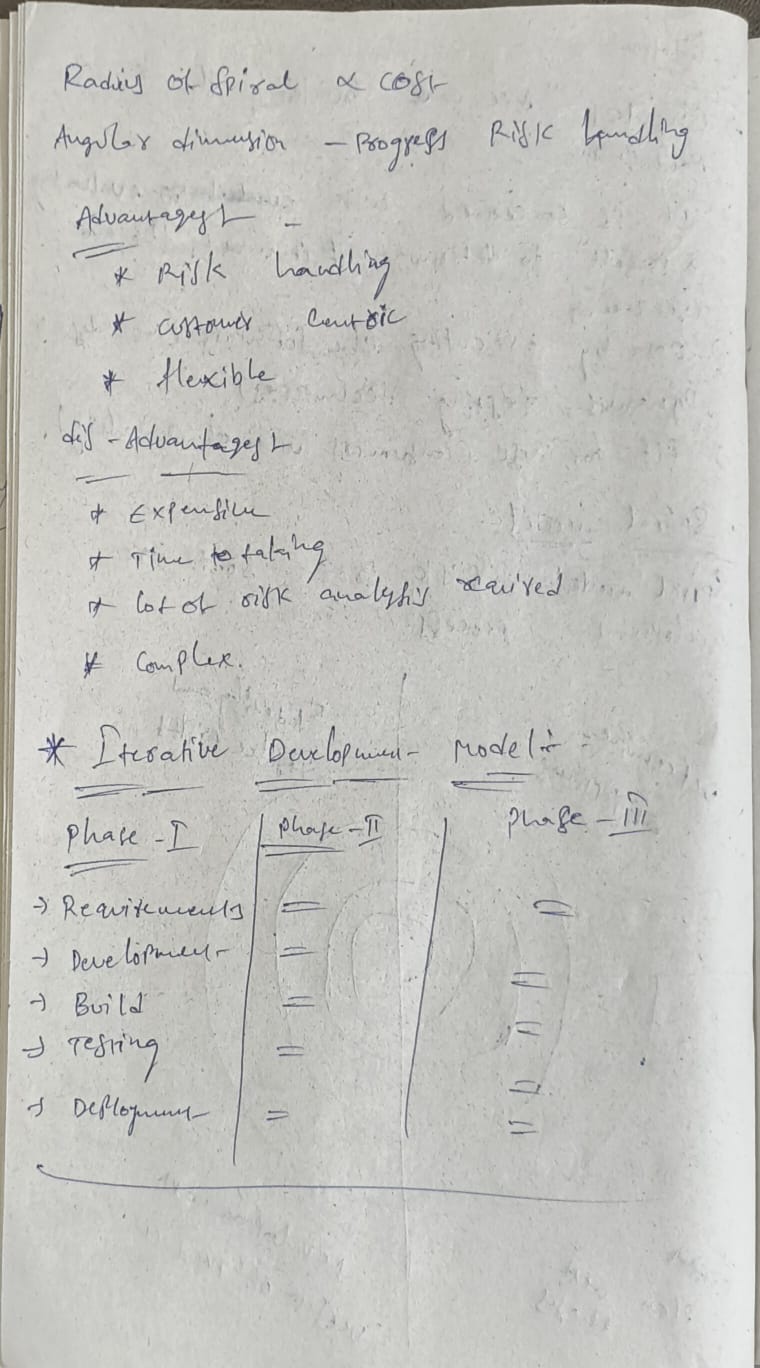 Radius of Spiral ∝ cost
Angular dimension - Progress Risk handling
Advantages :-
* Risk handling
* customer centric
* flexible
dis - Advantages :-
* Expensive
* Time taking
* lot of risk analysis required
* Complex.
* Iterative Development Model :-
Phase - I Phase - II Phase - III
→ Requirements = =
→ Development = =
→ Build = =
→ Testing = =
→ Deployment = =